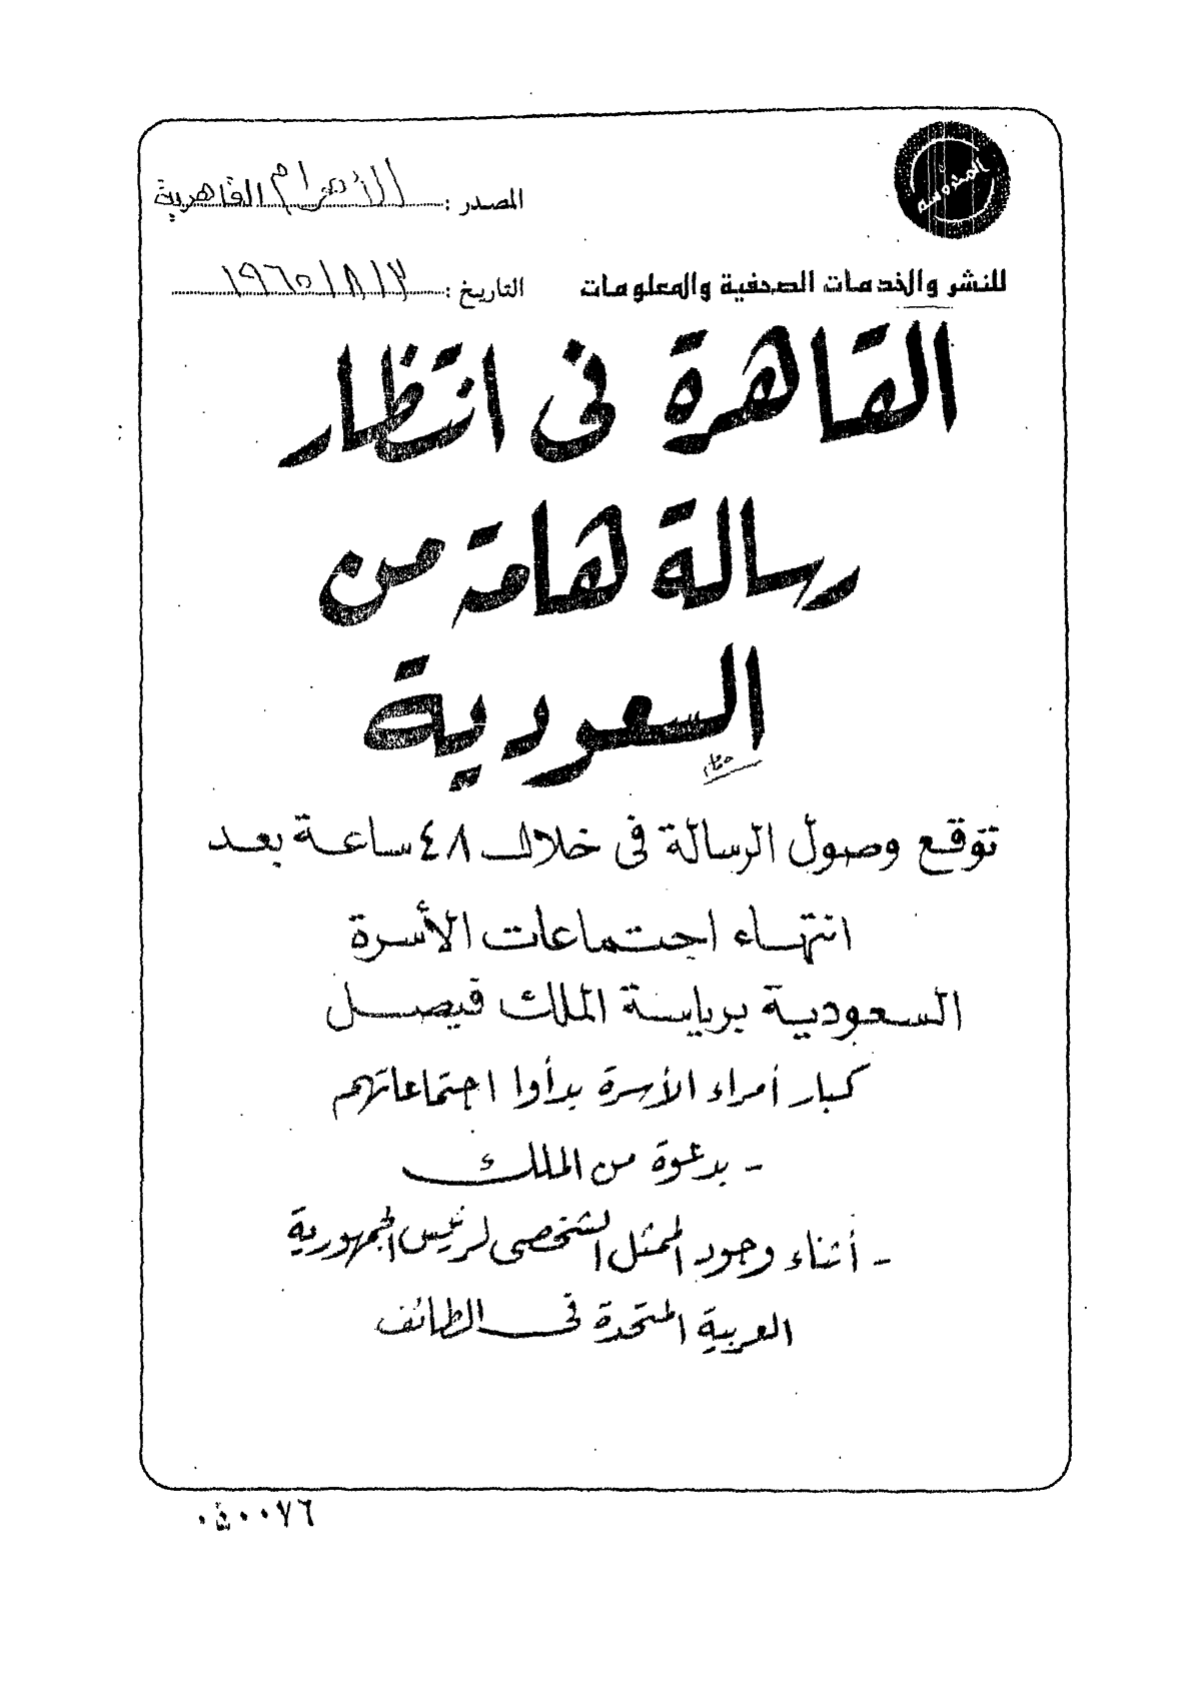 المدوسه
المصدر : الأهرام القاهرية
للنشر والخدمات الصحفية والمعلومات
التاريخ : ١٩٦٥/٨/٢
القاهرة فى انتظار
رسالة هامة من
السعودية
توقع وصول الرسالة فى خلال ٤٨ ساعة بعد
انتهاء اجتماعات الأسرة
السعودية برياسة الملك فيصل
كبار أمراء الأسرة بدأوا اجتماعاتهم
- بدعوة من الملك
- أثناء وجود الممثل الشخصى لرئيس الجمهورية
العربية المتحدة فى الطائف